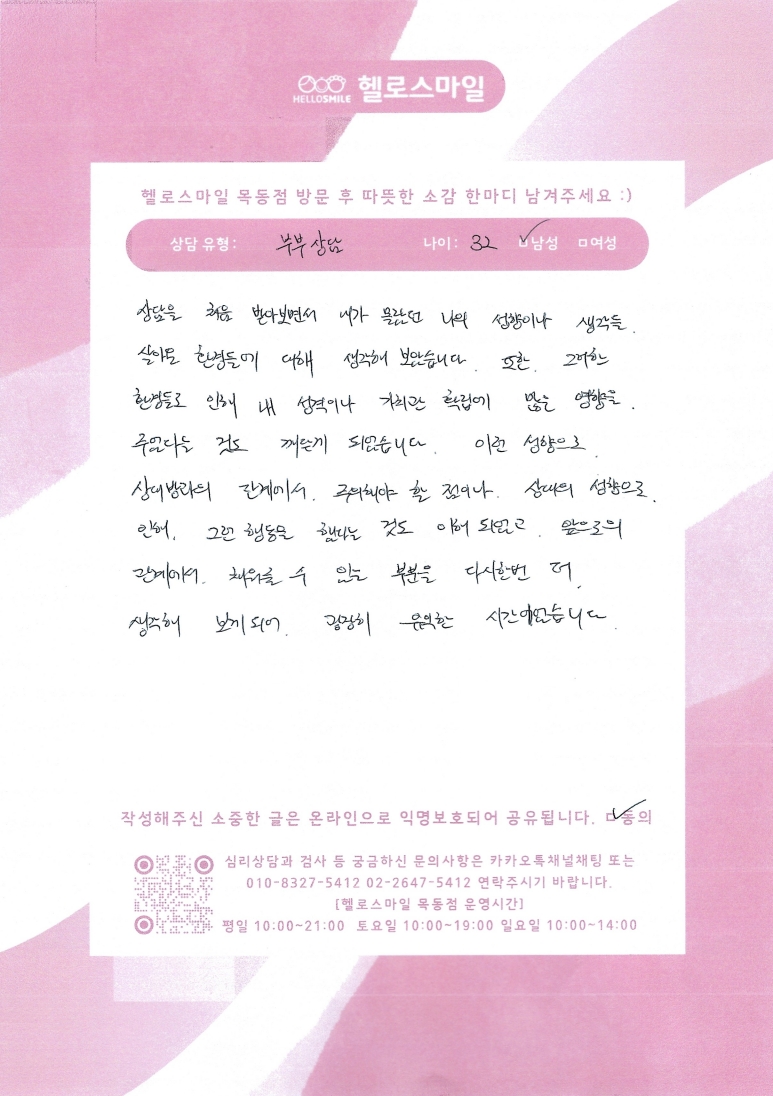 HELLOSMILE 헬로스마일
헬로스마일 목동점 방문 후 따뜻한 소감 한마디 남겨주세요 :)
상담 유형: 부부상담 나이: 32 ☑남성 □여성
상담을 처음 받아보면서 내가 몰랐던 나의 성향이나 생각들,
살아온 환경들에 대해 생각해 보았습니다. 또한, 그러한
환경들로 인해 내 성격이나 가치관 확립에 많은 영향을,
주었다는 것도 깨닫게 되었습니다. 이런 성향으로,
상대방과의 관계에서, 주의해야 할 점이나, 상대의 성향으로,
인해, 그런 행동을 했다는 것도 이해 되었고, 앞으로의
관계에서, 채워줄 수 있는 부분을 다시한번 더,
생각해 보게 되어, 굉장히 유익한 시간이었습니다.
작성해주신 소중한 글은 온라인으로 익명보호되어 공유됩니다. ☑동의
심리상담과 검사 등 궁금하신 문의사항은 카카오톡채널채팅 또는
010-8327-5412 02-2647-5412 연락주시기 바랍니다.
[헬로스마일 목동점 운영시간]
평일 10:00~21:00 토요일 10:00~19:00 일요일 10:00~14:00